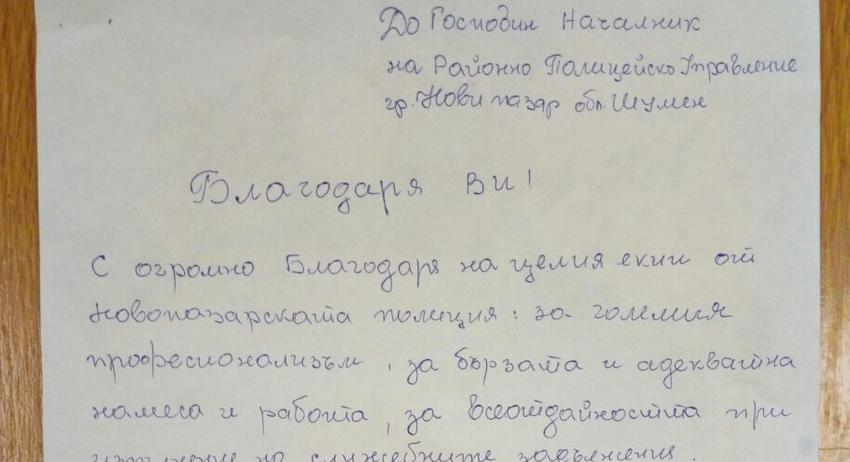 До Господин Началник
на Районно Полицейско Управление
гр. Нови пазар обл. Шумен
Благодаря Ви!
С огромно Благодаря на целия екип от
Новопазарската полиция: за големия
професионализъм, за бързата и адекватна
намеса и работа, за всеотдайността при
изпълнение на служебните задължения.